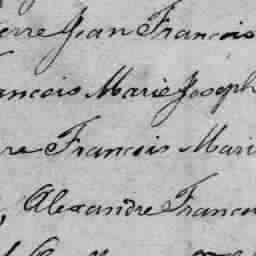 erre Jean Francois
ancois Marie Joseph
re Francois Mari
, Alexandre Francoi